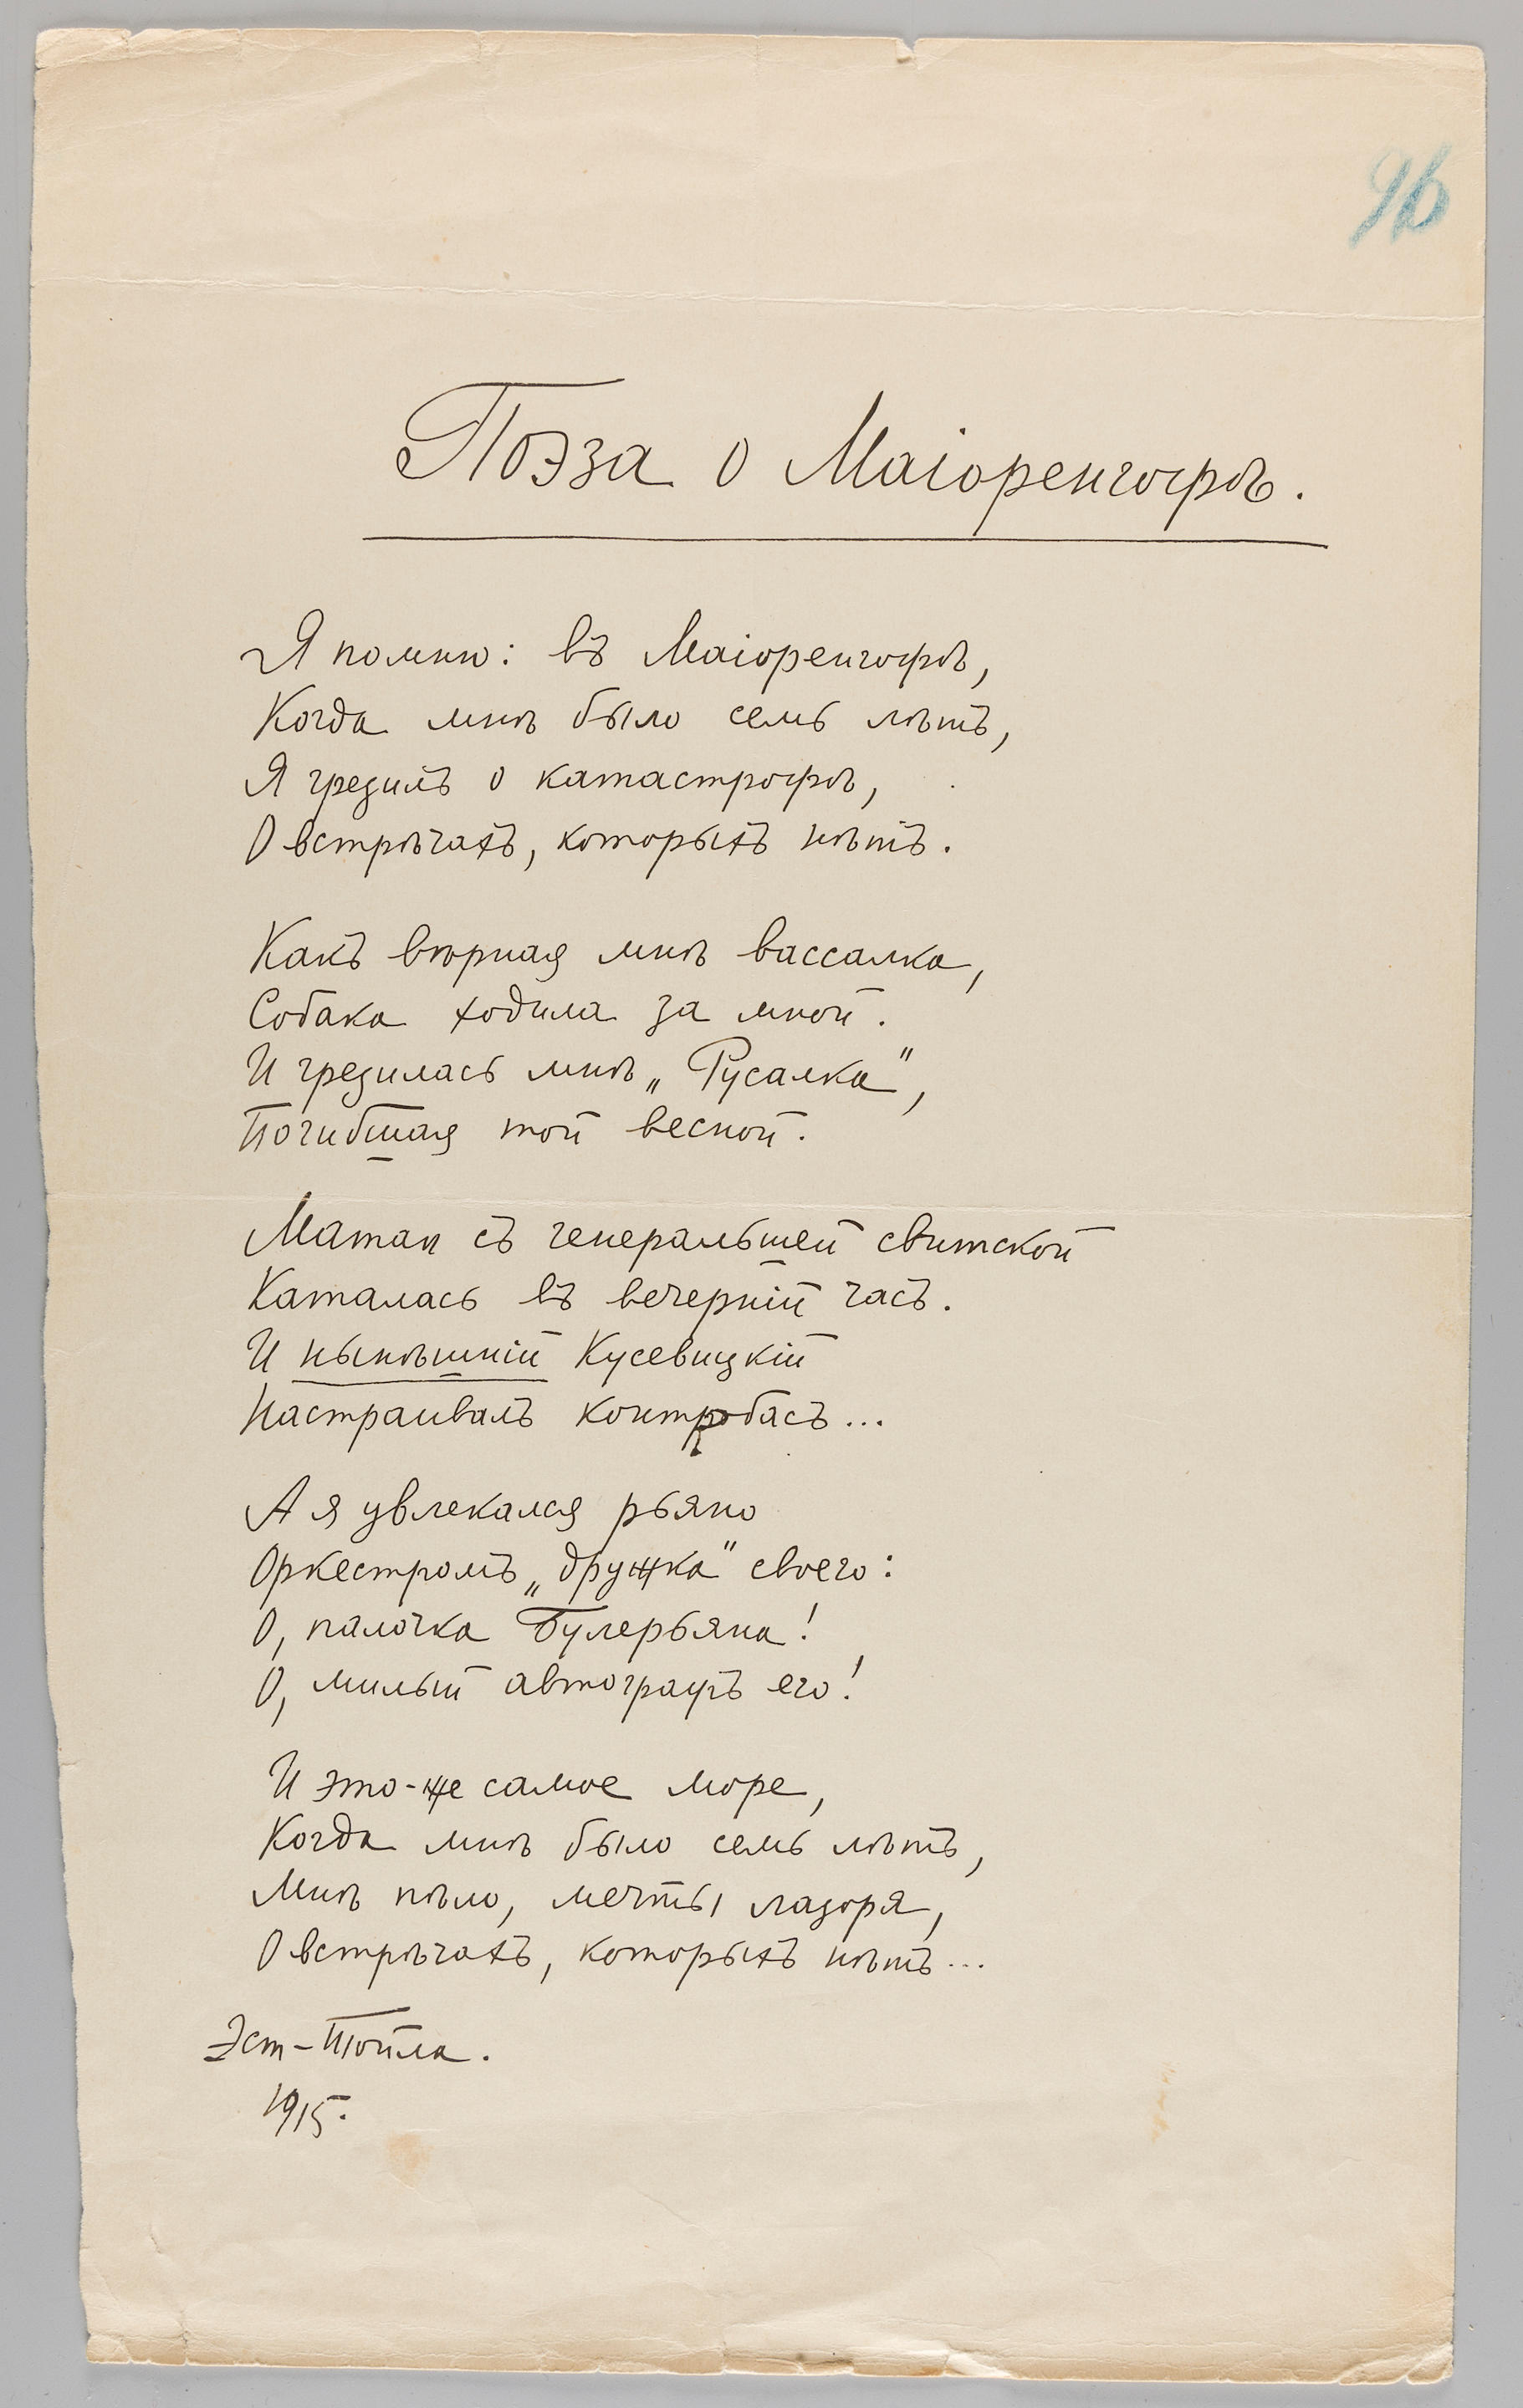 96
Поэза о Маіоренгофѣ.
Я помню: въ Маіоренгофѣ,
Когда мнѣ было семь лѣтъ,
Я грезилъ о катастрофѣ,
О встрѣчахъ, которыхъ нѣтъ.
Какъ вѣрная мнѣ вассалка,
Собака ходила за мной.
И грезилась мнѣ „Русалка“,
Погибшая той весной.
Maman съ генеральшей свитской
Каталась въ вечерній часъ.
И нынѣшній Кусевицкій
Настраивалъ контробасъ...
А я увлекался рьяно
Оркестромъ „дружка“ своего:
О, палочка Булерьяна!
О, милый автографъ его!
И это-же самое море,
Когда мнѣ было семь лѣтъ,
Мнѣ пѣло, мечты лазоря,
О встрѣчахъ, которыхъ нѣтъ...
Эст-Тойла.
1915.